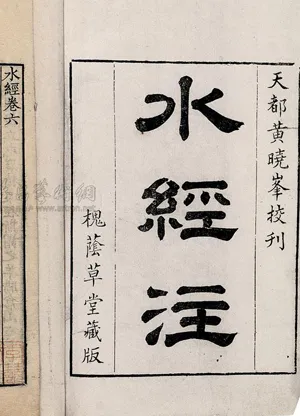 天都黄曉峯校刊
水經注
槐蔭草堂藏版
水經卷六